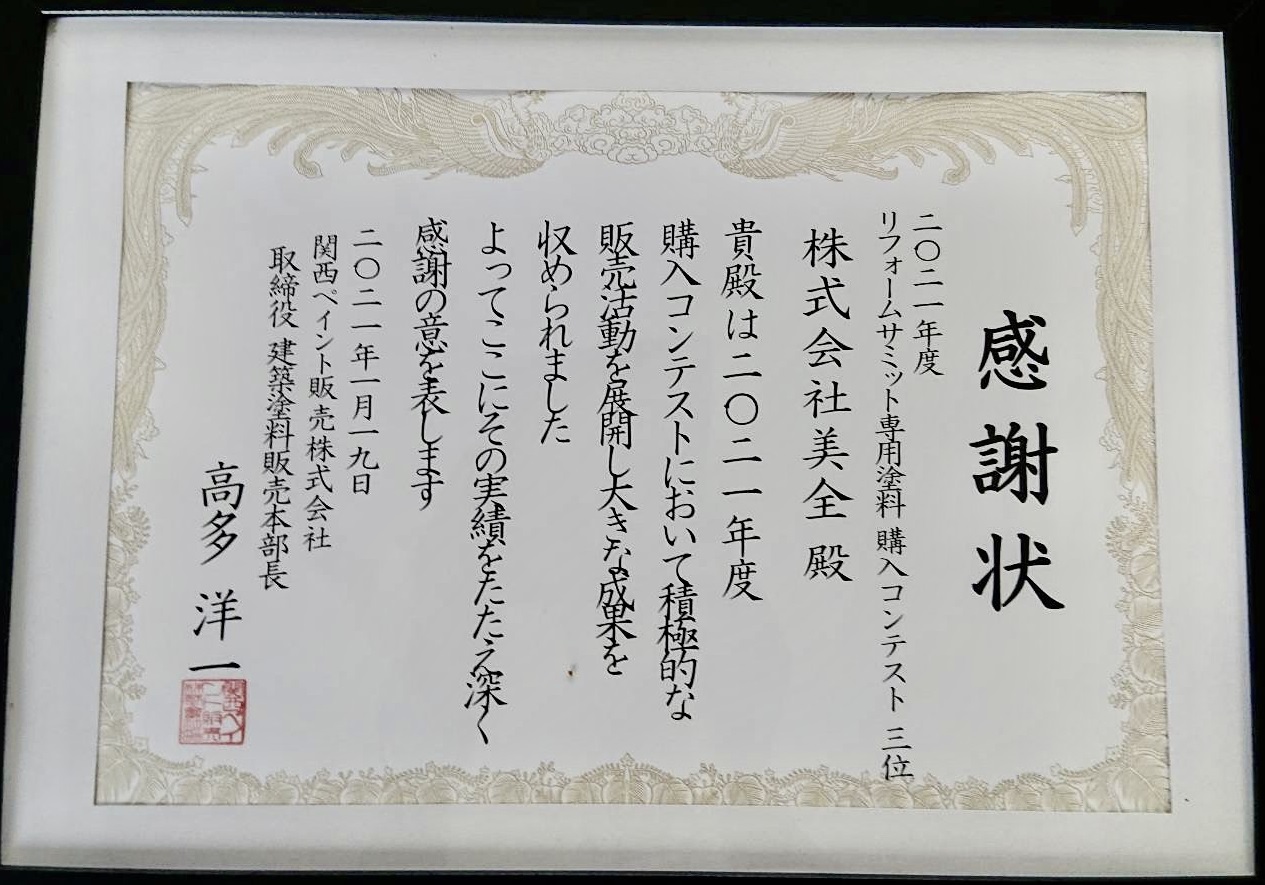 感謝状
二〇二一年度
リフォームサミット専用塗料 購入コンテスト 三位
株式会社美全 殿
貴殿は二〇二一年度
購入コンテストにおいて積極的な
販売活動を展開し大きな成果を
収められました
よってここにその実績をたたえ深く
感謝の意を表します
二〇二一年一月一九日
関西ペイント販売株式会社
取締役 建築塗料販売本部長
高多 洋一